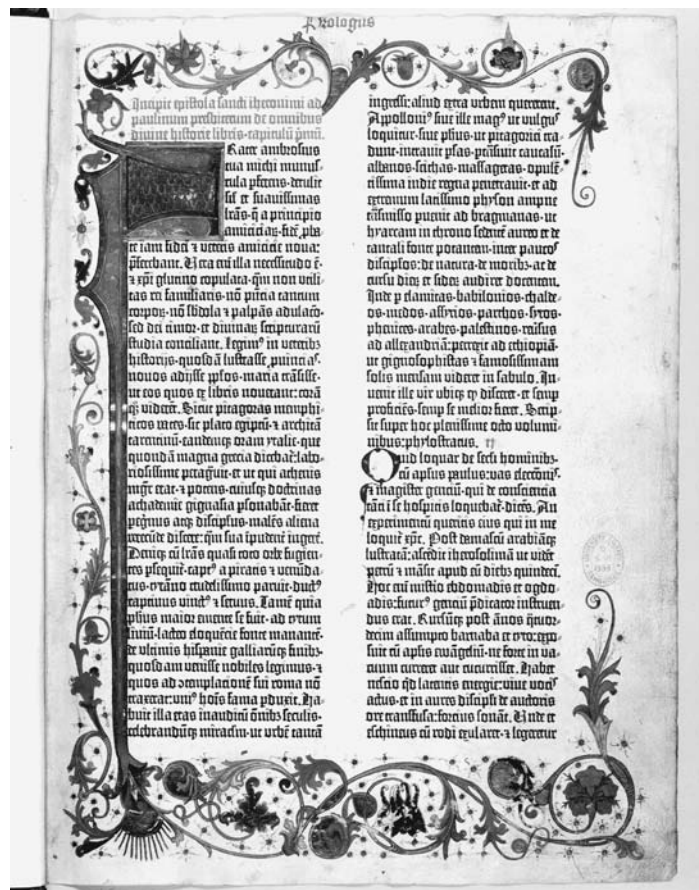 Prologus
Incipit epistola sancti iheronimi ad
paulinum presbiterum de omnibus
divine historie libris·capitulū pmū.
Frater ambrosius
tua michi munus-
cula pferens·detulit
sil et suavissimas
lrās·q̄ a principio
amiciciaꝝ·fidē pba-
te iam fidei ⁊ veteris amicicie nova:
pferebant. Vera enī illa necessitudo ē·
⁊ xpī glutino copulata·qm̄ non utili-
tas rei familiaris·nō pn̄tia tantum
corporꝝ·nō sbdola ⁊ palpās adulaco·
sed dei timor·et divinaꝝ scripturarū
studia conciliant. Legimꝰ in veteribꝫ
historijs·quosdā lustrasse puinciaꝭ·
novos adijsse pplos·maria trāsisse·
ut eos quos ex libris noverant: corā
qꝫ viderēt. Sicut pitagoras memphi-
ticos vates·sic plato egiptū·⁊ architā
tarentinū·eandemqꝫ oram ytalie·que
quondā magna grecia dicebaꞇ: labo-
riosissime peragvit·et ut qui athenis
mgr̄ erat·⁊ potens·cuiusqꝫ doctrinas
achademie gignasia psonabāt·fieret
pegrinus atqꝫ discipulus·malēs aliena
verecūde discere: qm̄ sua īpudent̄ ingerē.
Deniqꝫ cū lrās quasi toto orbe fugien-
tes psequiꞇ·captꝰ a piratis ⁊ venūda-
tus·tyrāno crudelissimo paruit·ductꝰ
captivus vinctꝰ ⁊ servus. Tamē quia
phus maior emente se fuit·ad tytum
liviū·lacteo eloquēcie fonte manantē·
de ultimis hispanie galliarūqꝫ finibꝫ·
quosdam venisse nobiles legimus·⁊
quos ad ꝯtemplacionē sui roma nō
traxerat: unꝰ hoīs fama pduxit. Ha-
buit illa etas inauditū om̄ibꝫ seculis·
celebrandūqꝫ miraclm̄·ut urbē tantā
ingressi: aliud extra urbem quererent.
Appolloniꝰ sive ille magꝰ ut vulgꝰ
loquitur·sive phus·ut pitagorici tra-
dunt·intravit psas·ptrāsivit caucasū·
albanos·scithas·massagetas·opulē-
tissima indie regna penetravit·et ad
extremum latissimo physon ampne
trāsmisso puenit ad bragmanas·ut
hyarcam in throno sedentē aureo et de
tantali fonte potantem·inter paucoꝭ
discipulos·de natura·de moribꝫ·ac de
cursu dieꝝ et sideꝝ audiret docentem.
Inde p elamitas·babilonios·chalde-
os·medos·assyrios·parthos·syros·
phenices·arabes·palestinos·revsus
ad allexandriā: perrexit ad ethiopiā·
ut gignosophistas ⁊ famosissimam
solis mensam videret in sabulo. In-
venit ille vir ubiqꝫ qd disceret·et semp
proficiēs·semp se melior fieret. Scrip-
sit super hoc plenissime octo volumi-
nibus: phylostratus.
Quid loquar de secli hominibꝫ·
cū apsus paulus: vas electōnis·
⁊ magister genciū·qui de consciencia
tāti ī se hospitis loquebaꞇ·dicēs. An
experimentū queritis eius qui in me
loquiꞇ xpc. Post damascū arabiāqꝫ
lustratā: ascēdit iherosolimā ut videt
petrū ⁊ māsit apud eū diebꝫ quindeci.
Hoc enī mistio ebdomadis et ogdo-
adis: futurꝰ genciū pdicator instruen-
dus erat. Rursūqꝫ post ānos qtuor-
decim assumpto barnaba et tyto: expo-
suit cū apsus ewāgeliū·ne forte in va-
cuum curreret aut cucurrisset. Habet
nescio qd latentis energie: vive vociꝭ
actus·et in aures discipli de auctoris
ore transfusa: forcius sonat. Unde et
eschineus cū rodi exularet·⁊ legeretur